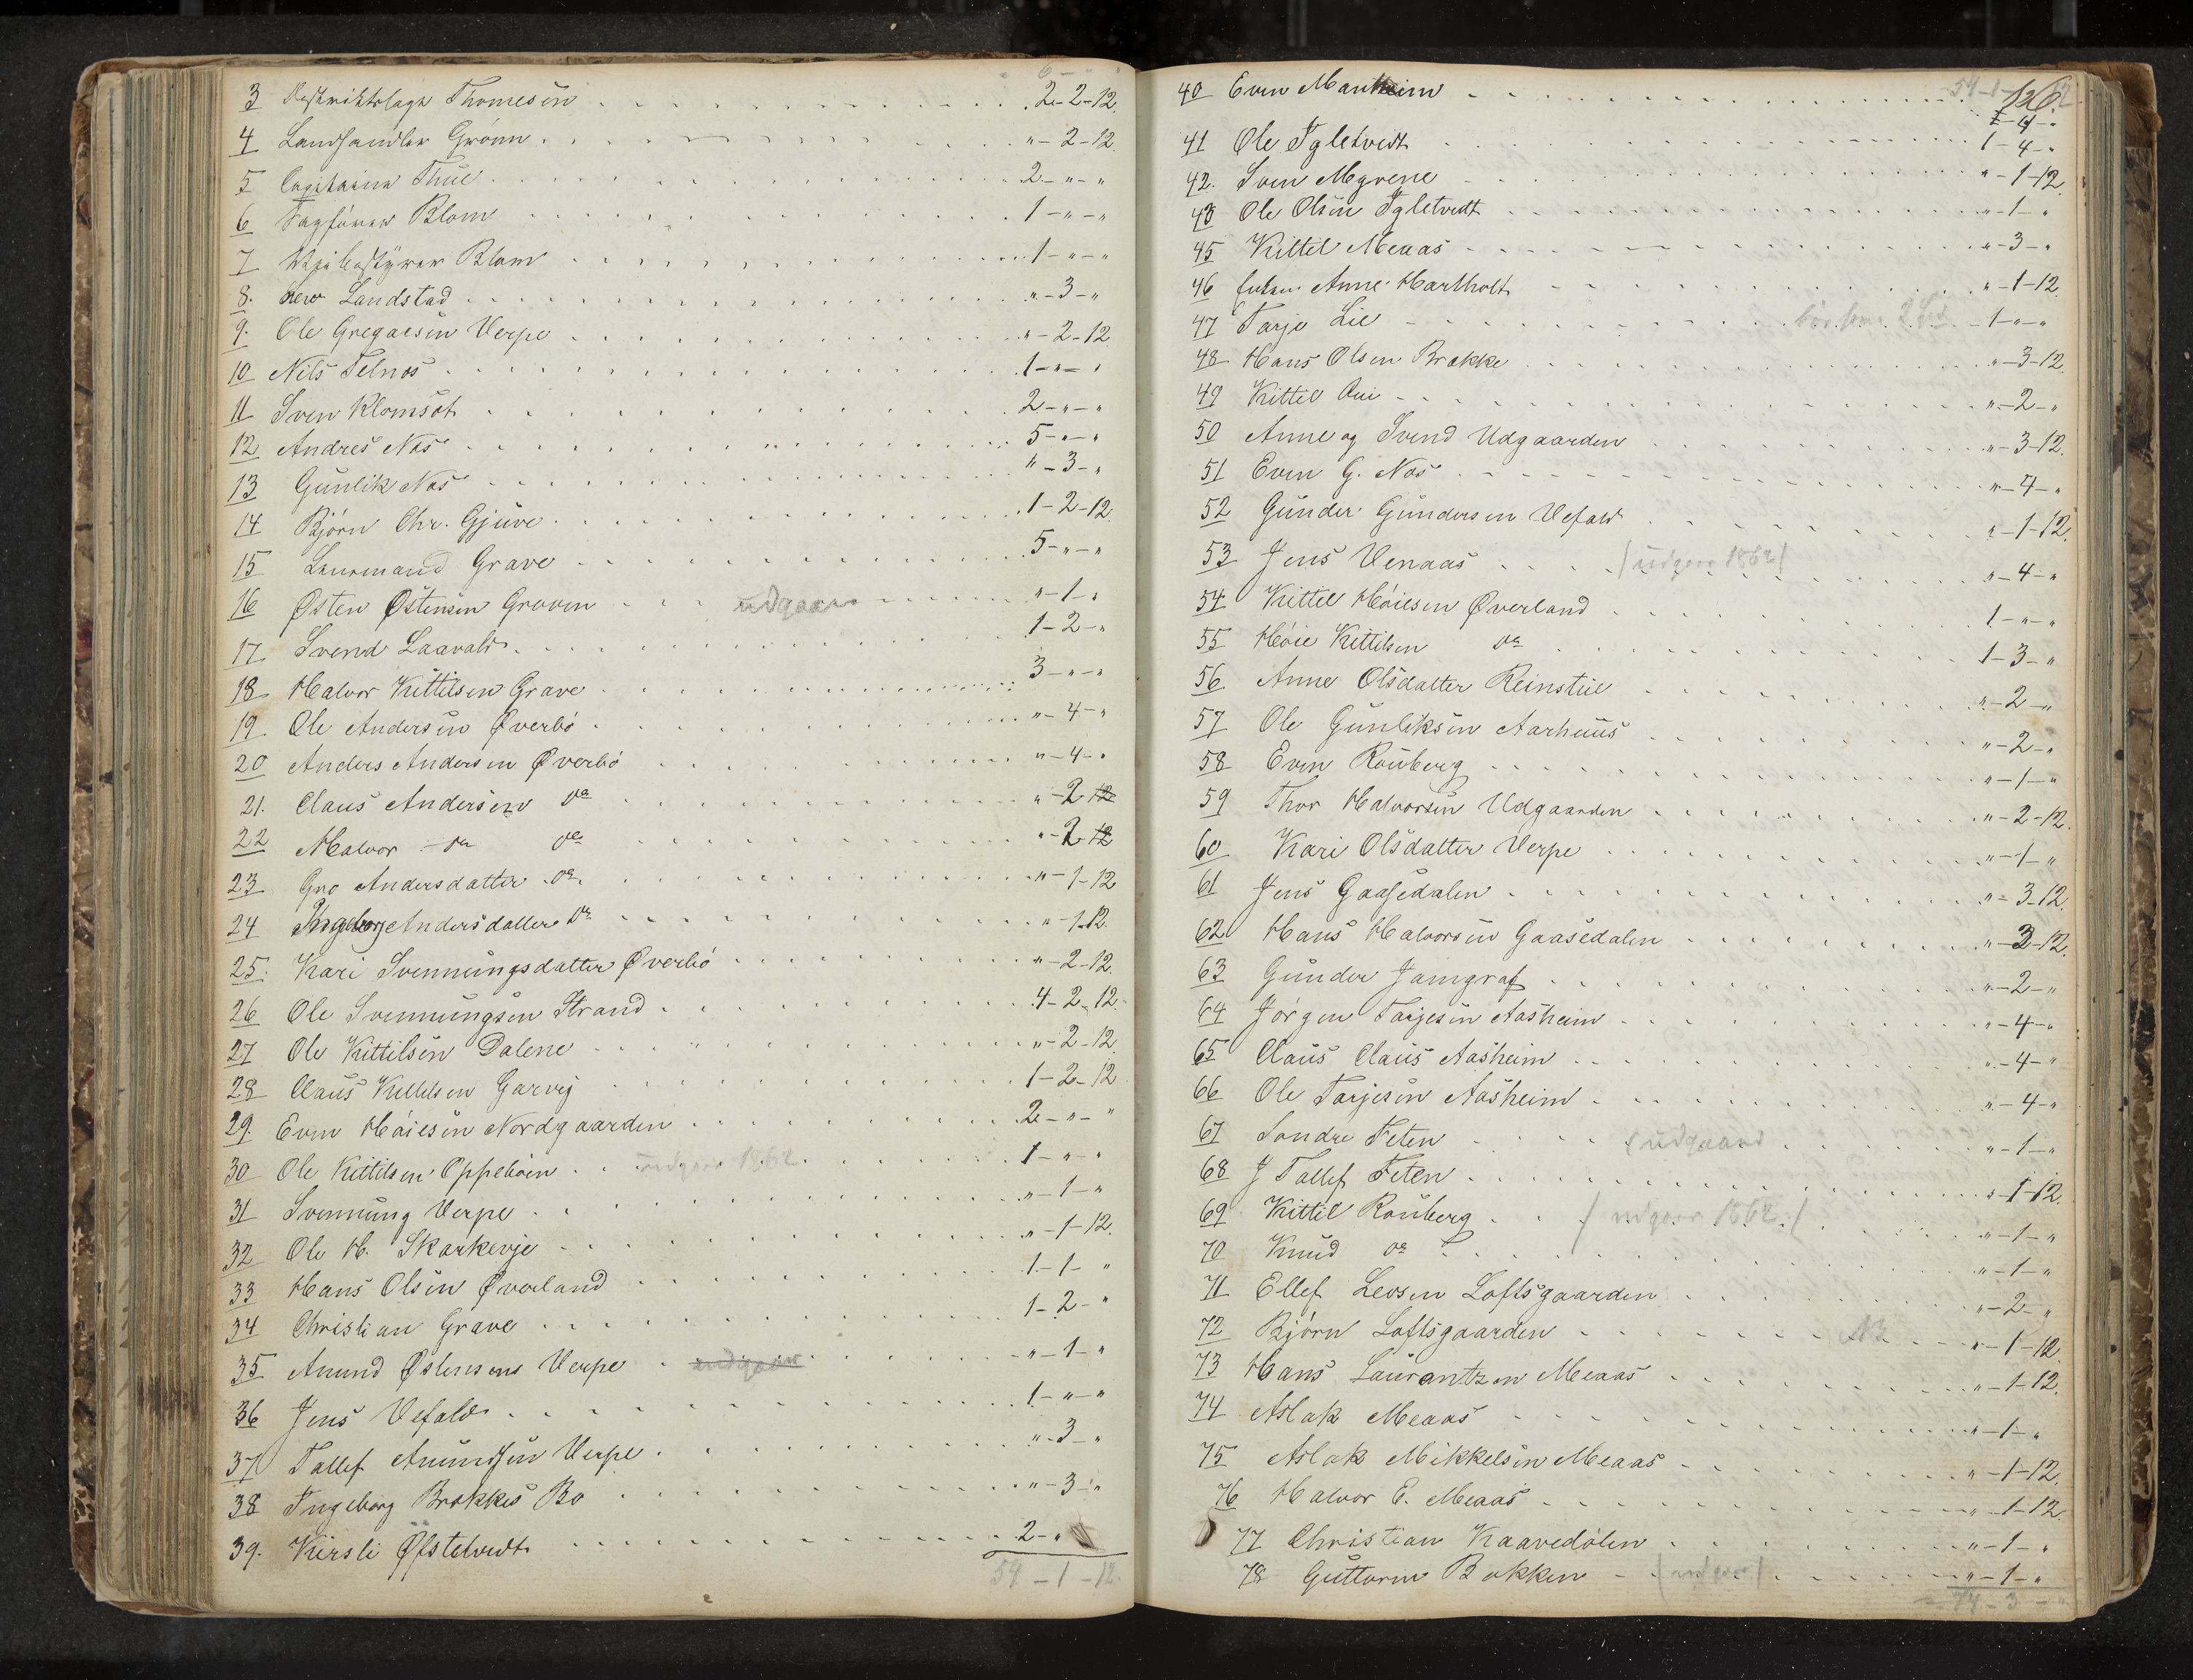 3 Distriktslæge Thomesen . . . 2-2-12.
4 Landhandler Grönn . . . "-2-12.
5 Capitaine Thue . . . 2-"-"
6 Sagförer Blom . . . 1-"-"
7 Blom . . . 1-"-"
8. Landstad . . . "-3-"
9. Ole Gregarsen Verpe . . . "-2-12.
10 Nils Telnæs . . . 1-"-"
11 Sven Klomsæt . . . 2-"-"
12 Andres Næs . . . 5-"-"
13 Gunlik Næs . . . "-3-"
14 Björn Chr. Gjuve . . . 1-2-12.
15 Lensmand Grave . . . 5-"-"
16 Østen Østensen Groven . . . udgaar . . . "-1-"
17 Svend Laavald . . . 1-2-"
18 Halvor Kittilsen Grave . . . 3-"-"
19 Ole Andersen Øverbö . . . "-4-"
20 Anders Andersen Øverbö . . . "-4-"
21. Claus Andersen do . . . "-2-12
22 Halvor do do . . . "-2-12
23 Gro Andersdatter do . . . "-1-12
24 Ingeborg Andersdatter do . . . "-1-12.
25. Kari Svennungsdatter Øverbö . . . "-2-12.
26 Ole Svennungsen Strand . . . 4-2-12.
27 Ole Kittilsen Dalene . . . "-2-12
28 Claus Kittilsen Garvig . . . 1-2-12
29. Even Höiesen Nordgaarden . . . 2-"-"
30 Ole Kittilsen Oppeböen . . udgaar 1862 . . . 1-"-"
31 Svennung Verpe . . . "-1-"
32 Ole H. Skarkerje . . . "-1-12.
33 Hans Olsen Øverland . . . 1-1-"
34 Christian Grave . . . 1-2-"
35 Amund Østensens Verpe . udgaar . . . "-1-"
36 Jens Vefald . . . 1-"-"
37 Tallef Amundsen Verpe . . . "-3-"
38 Ingeborg Brækkes Bo . . . "-3-"
39. Kirsti Øfstetvedt . . . 2-"
54-1-12.
54-1-12
126.
40 Even Manheim . . . 1-4-"
41 Ole Igletvedt . . . 1-4-"
42. Sven Myrene . . . "-1-12.
43 Ole Olsen Igletvedt . . . "-1-"
45 Kittil Meaas . . . "-3-"
46 Enken Anne Hartholt . . . "-1-12.
47 Tarje Lie . . . 1-"-"
48 Hans Olsen Brække . . . "-3-12.
49 Kittel Lui . . . "-2-"
50 Anne og Svend Udgaarden . . . "-3-12.
51 Even G. Næs . . . "-4-"
52 Gunder Gundersen Vefald . . . "-1-12.
53 Jens Venaas . . . /udgaar 1862/ . . . "-4-"
54 Kittil Höiesen Øverland . . . 1-"-"
55 Höie Kittilsen do . . . 1-3-"
56 Anne Olsdatter Reinstul . . . "-2-"
57 Ole Gunliksen Aarhuus . . . "-2-"
58 Even Rouberg . . . "-1-"
59 Thor Halvorsen Udgaarden . . . "-2-12.
60 Kari Olsdatter Verpe . . . "-1-"
61 Jens Gaasedalen . . . "-3-12.
62 Hans Halvorsen Gaasedalen . . . "-3-12.
63 Gunder Jamgraf . . . "-2-"
64 Jörgen Tarjesen Aasheim . . . "-4-"
65 Claus Claus Aasheim . . . "-4-"
66 Ole Tarjesen Aasheim . . . "-4-"
67 Sondre Teten . . . udgaard . . . "-1-"
68 J Tallef Teten . . . "-1-12.
69 Kittil Rouberg . . . / udgaar 1862 / . . . "-1-"
70 Knud do . . . "-1-"
71 Ellef Leosen Loftsgaarden . . . "-2-"
72 Björn Loftsgaarden . . . "-1-12.
73 Hans Laurantzen Meaas . . . "-1-12.
74 Aslak Meaas . . . "-1-"
75 Aslak Mikkelsen Meaas . . . "-1-12.
76 Halvor E. Meaas . . . "-1-12.
77 Christian Kaavedölen . . . "-1-"
78 Guttorm Bakken . . /udgaar/ . . . "-1-"
74-3-"